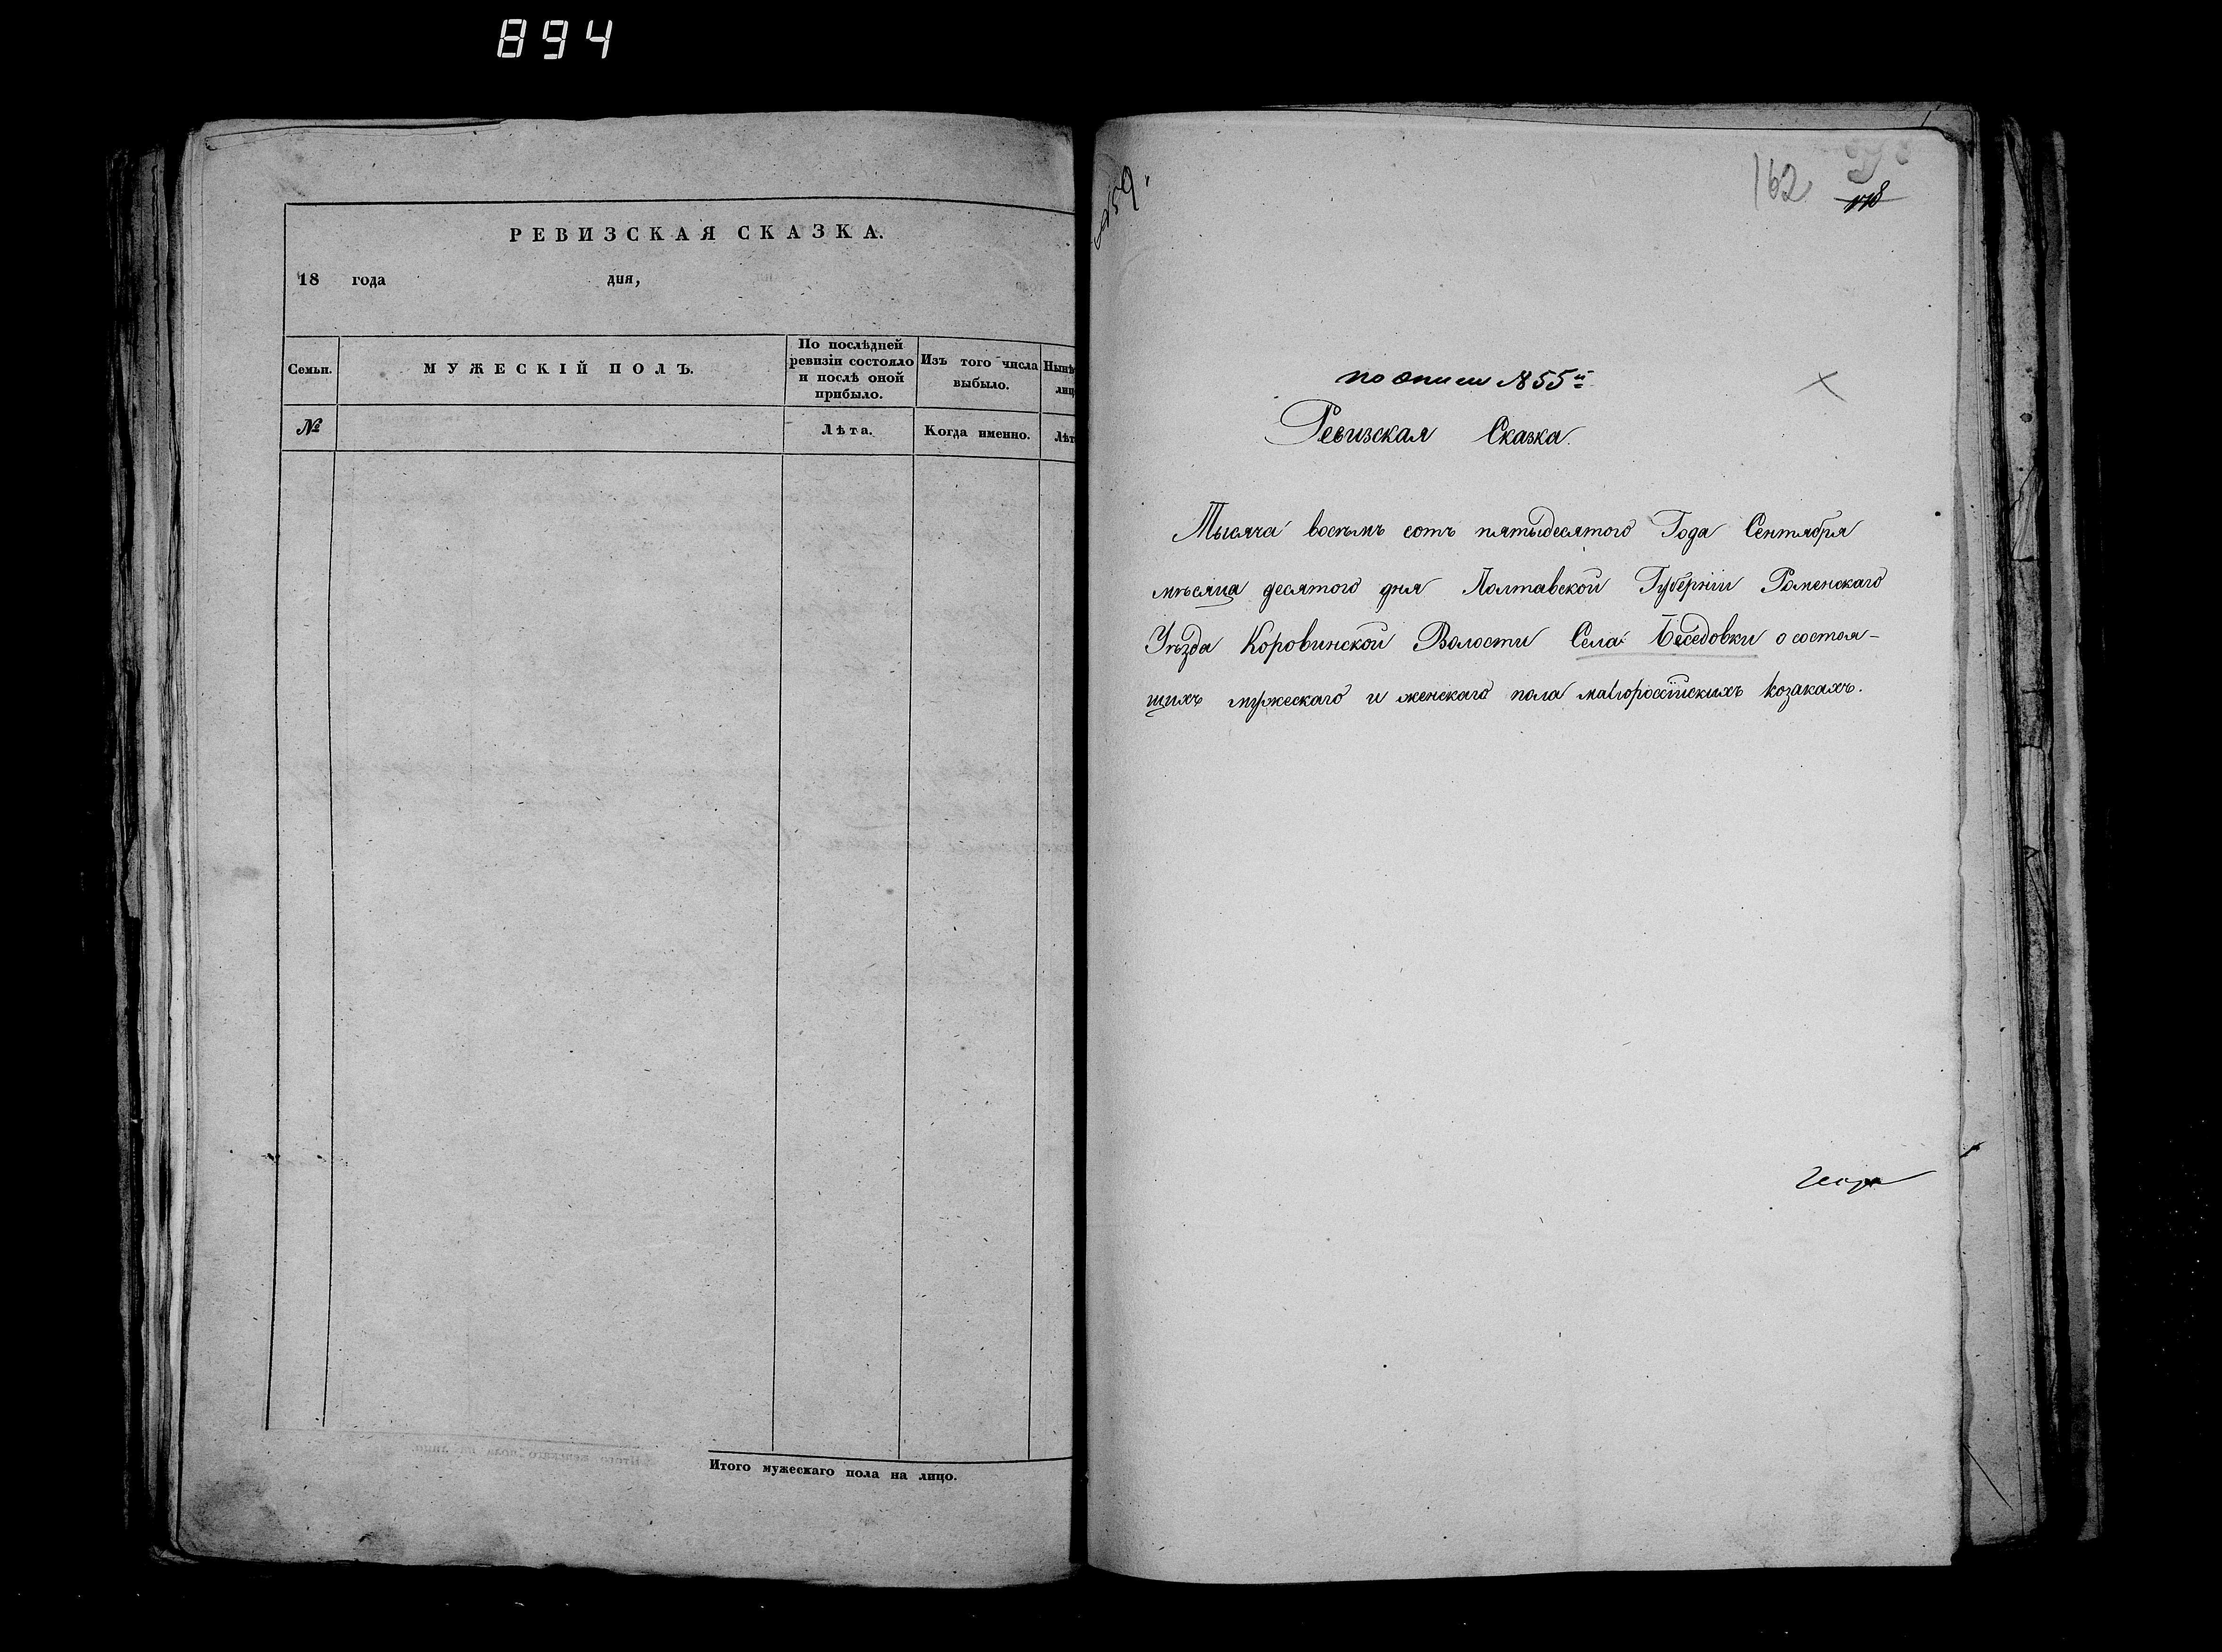 894
РЕВИЗСКАЯ СКАЗКА.
18 года дня,
Семьи.
МУЖЕСКІЙ ПОЛЪ.
По послѣдней
ревизіи состояло
и послѣ оной
прибыло.
Изъ того числа
выбыло.
№
Лѣта.
Когда именно.
Итого мужескаго пола на лицо.
162
по описи №55й
Ревизская Сказка.
Тысяча восѣмъ сотъ пятыдесятого Года Сентября
мѣсяца десятого дня Полтавской Губерніи Роменскаго
Уѣзда Коровинской Волости Села Беседовки о состоя-
щихъ мужескаго и женскаго пола малороссійскихъ козакахъ.